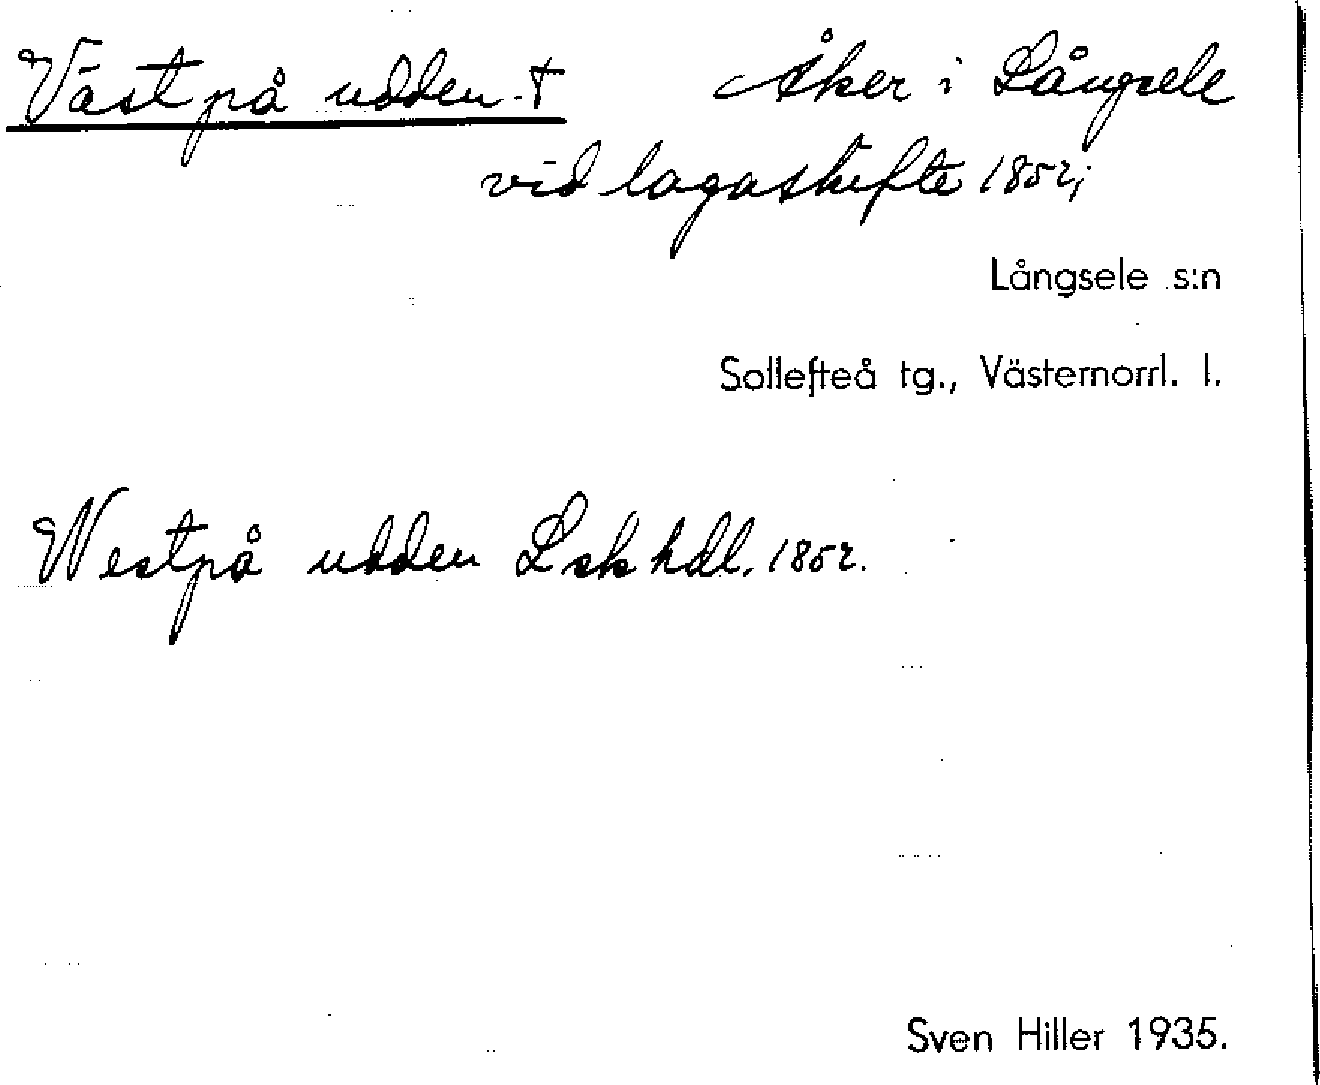 Västpå udden † Åker i Långsele
vid lagaskifte 1852;
Långsele s:n
Sollefteå tg., Västernorrl. l.
Westpå udden Lskhdl. 1852.
Sven Hiller 1935.